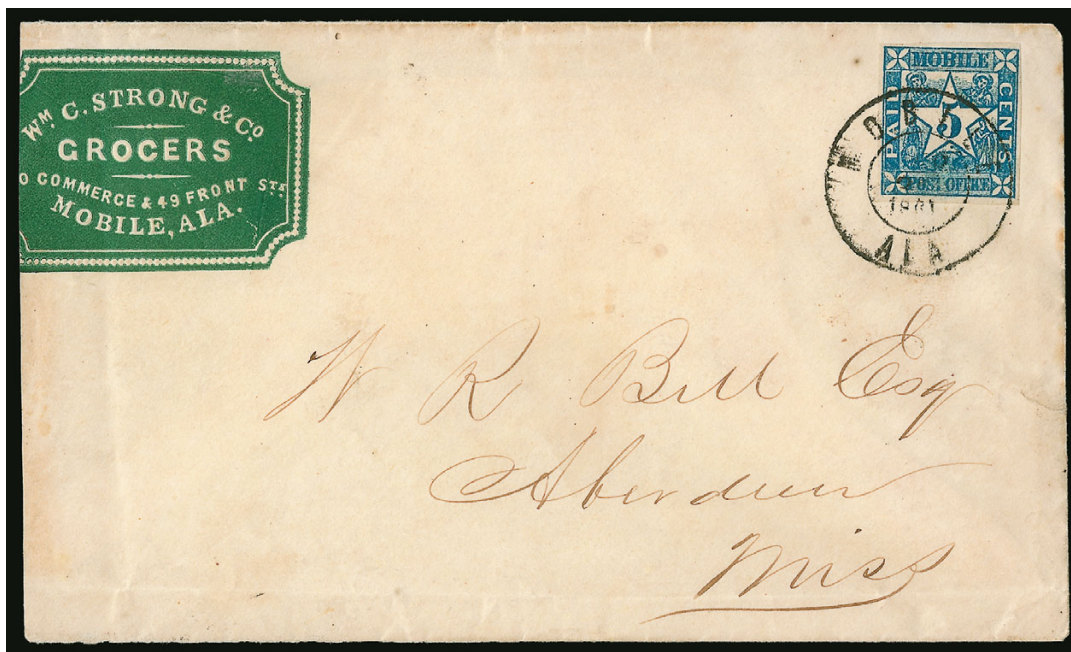 WM. C. STRONG & CO
GROCERS
O COMMERCE & 49 FRONT STS
MOBILE, ALA.
MOBILE
PAID
5
CENTS
POST OFFICE
MOBILE
1861
ALA
W R Bill Esq
Aberdeen
Miss